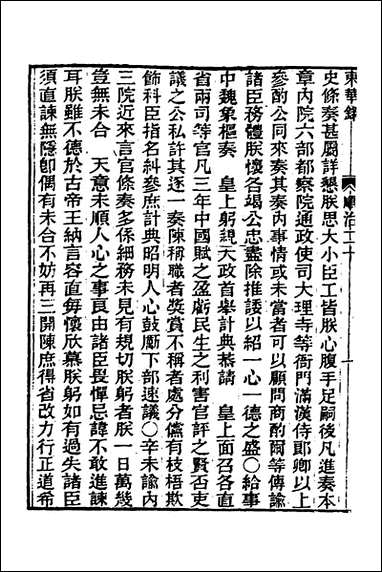 東華錄 順治二十 一
史條奏甚屬詳懇朕思大小臣工皆朕心腹手足嗣後凡進奏本
章內院六部都察院通政使司大理寺等衙門滿漢侍郞卿以上
參酌公同來奏其奏內事情或未當者可以顧問商酌爾等傳諭
諸臣務體朕懷各竭公忠盡除推諉以紹一心一德之盛○給事
中魏象樞奏 皇上躬親大政首舉計典恭請 皇上面召各直
省兩司等官凡三年中國賦之盈虧民生之利害官評之賢否吏
議之公私許其逐一奏陳稱職者獎賞不稱者處分儻有枝梧欺
飾科臣指名糾參庶計典昭明人心鼓勵下部速議○辛未諭內
三院近來言官條奏多係細務未見有規切朕躬者朕一日萬幾
豈無未合 天意未順人心之事良由諸臣畏憚忌諱不敢進諫
耳朕雖不德於古帝王納言容直每懷欣慕朕躬如有過失諸臣
須直諫無隱卽偶有未合不妨再三開陳庶得省改力行正道希